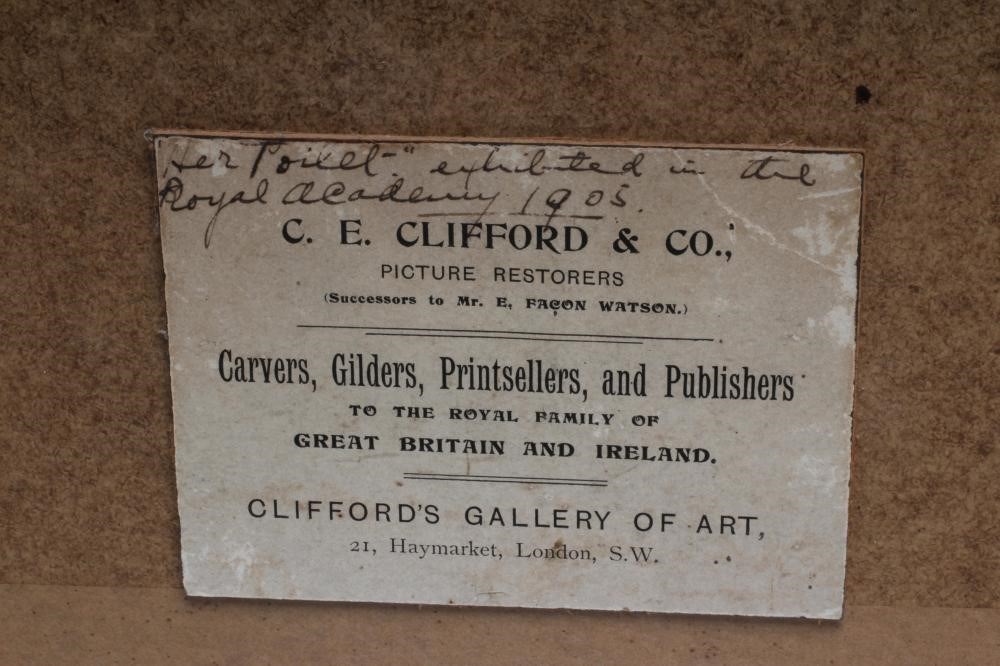 Her " exhibited in the
Royal Academy 1905.
C. E. CLIFFORD & CO.,
PICTURE RESTORERS
(Successors to Mr. E. FAÇON WATSON.)
Carvers, Gilders, Printsellers, and Publishers
TO THE ROYAL FAMILY OF
GREAT BRITAIN AND IRELAND.
CLIFFORD'S GALLERY OF ART,
21, Haymarket, London, S.W.